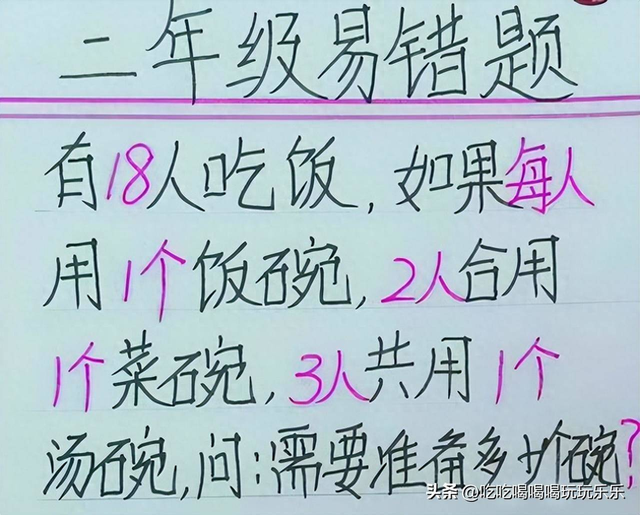 二年级易错题
有18人吃饭,如果每人
用1个饭碗,2人合用
1个菜碗,3人共用1个
汤碗,问:需要准备多少个碗?
头条 @吃吃喝喝喝玩玩乐乐